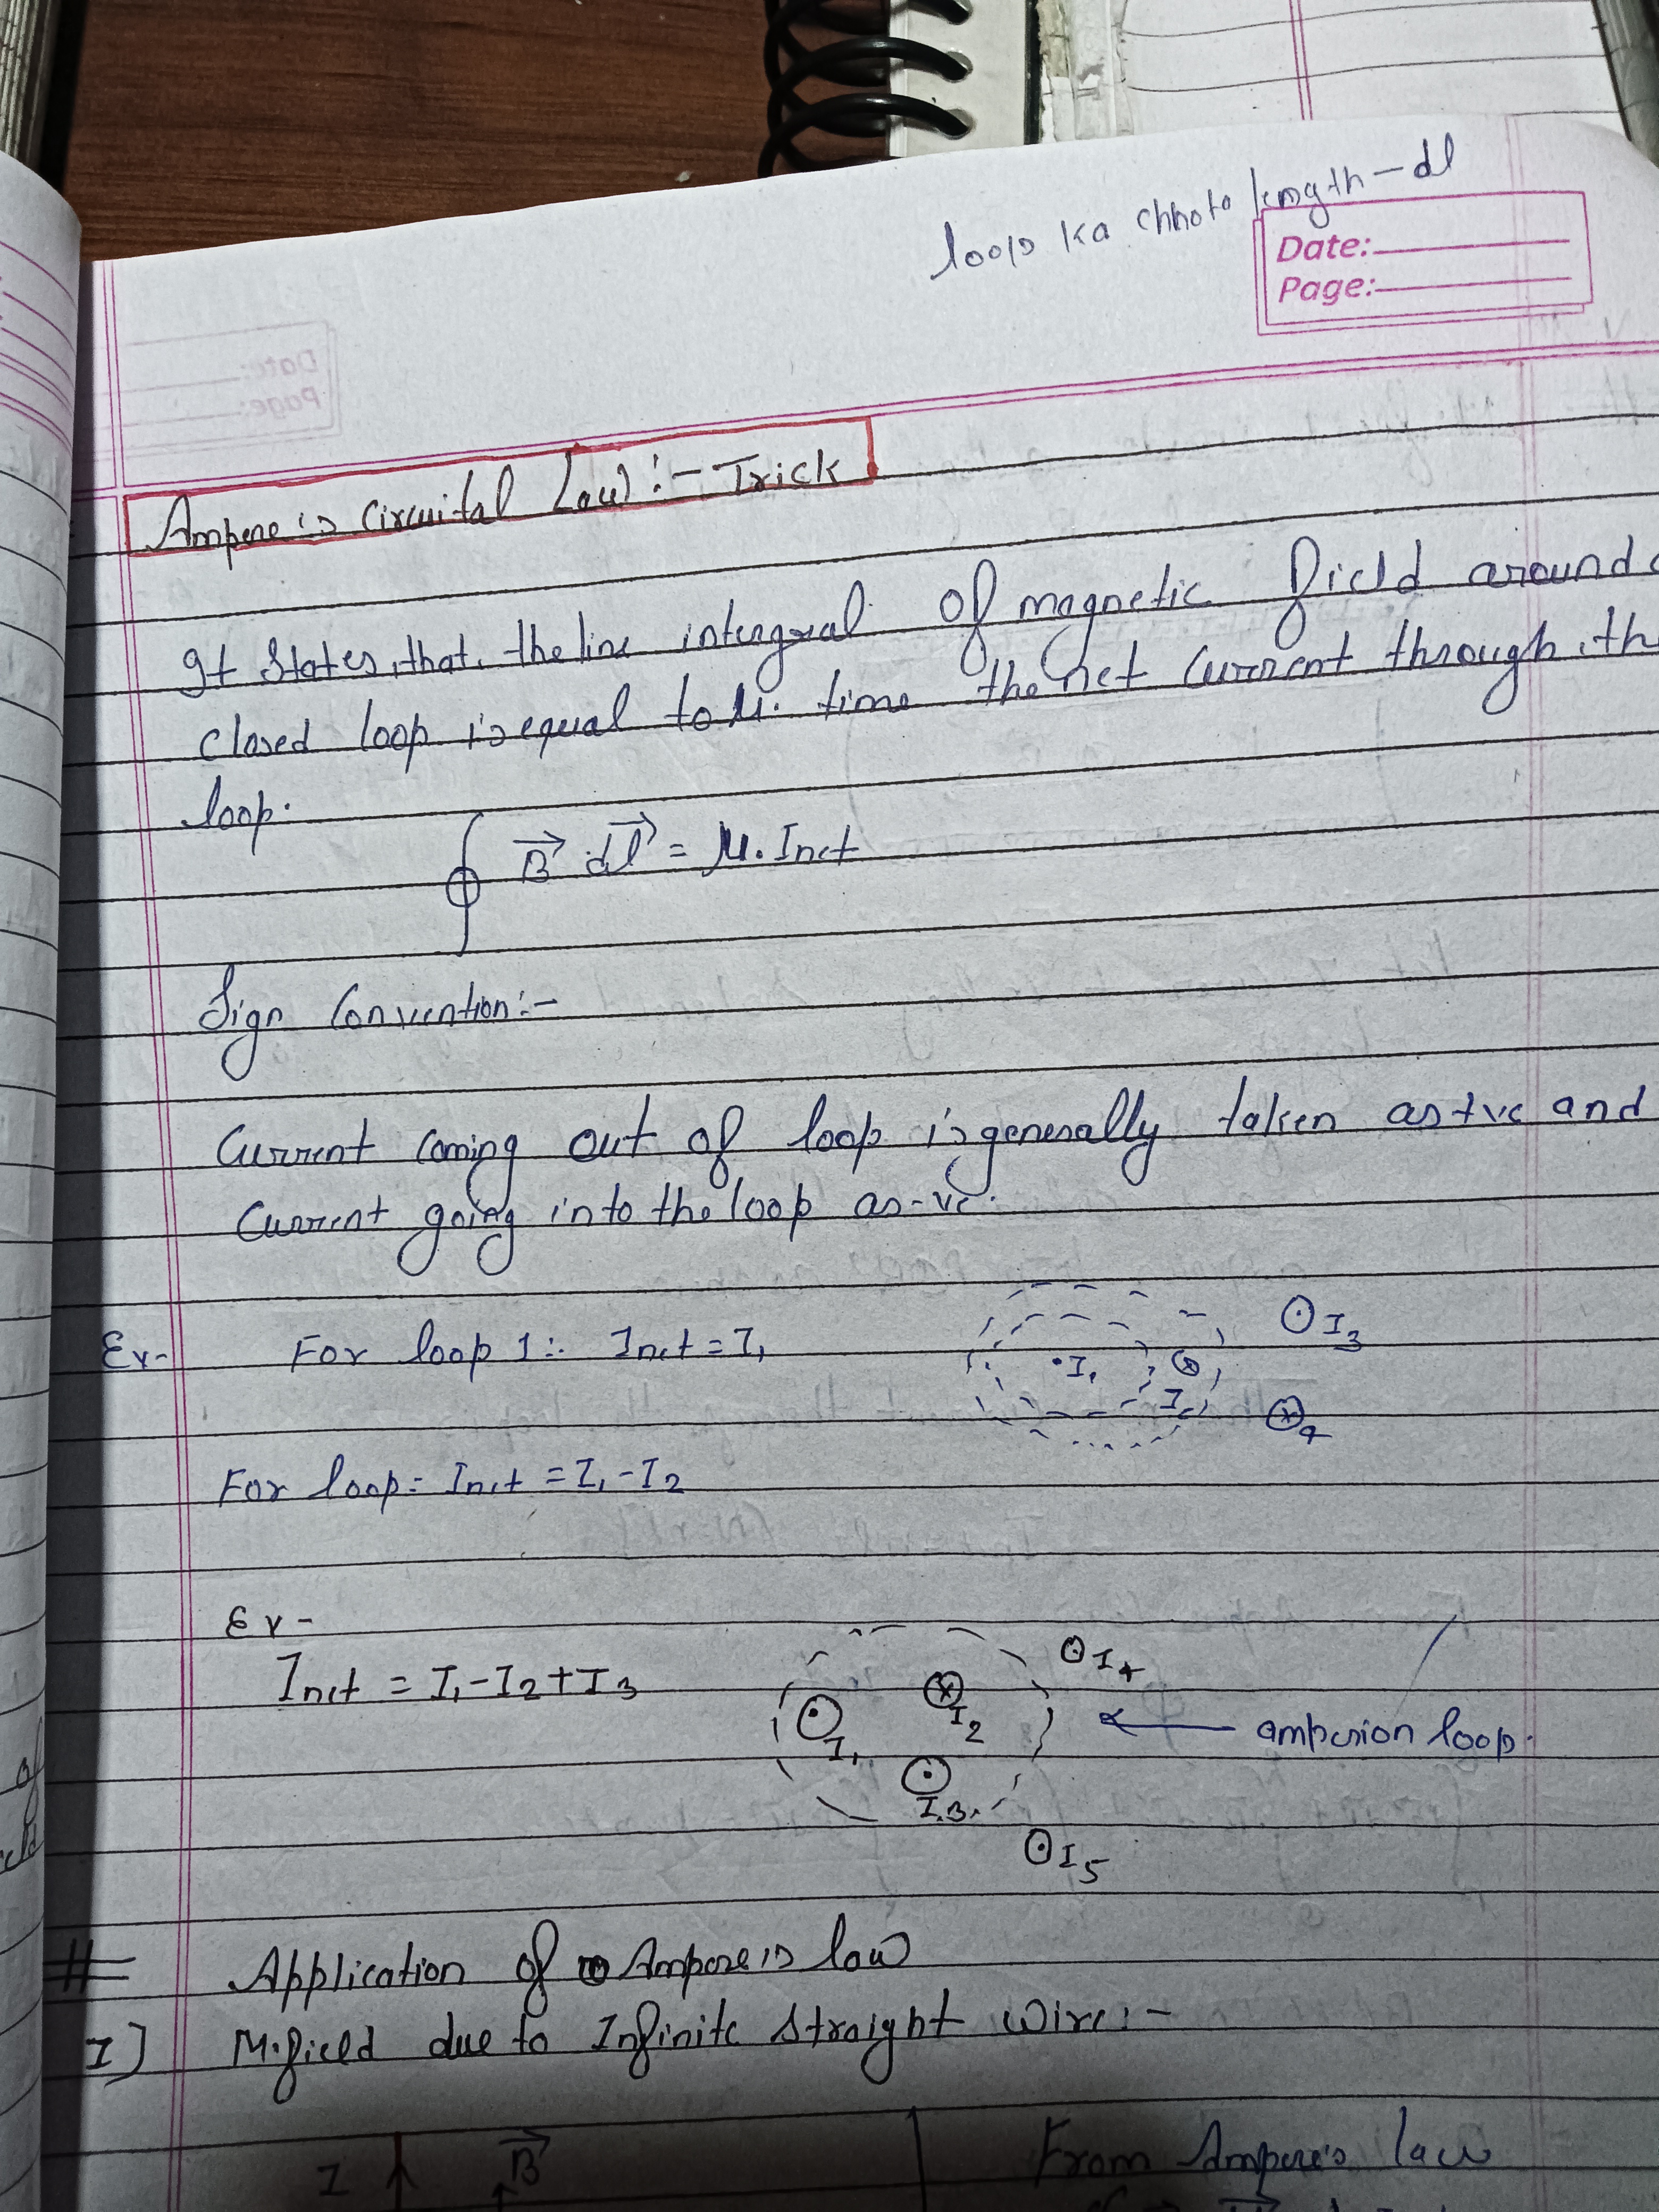 loop ka chhota length - dl
Date:
Page:
Ampere's Circuital Law :- Trick
It states, that, the line intergral of magnetic field around a
closed loop is equal to μ. time the net current through the
loop.
∮ B⃗ dl⃗ = μ. Inet
Sign Convention:-
Current coming out of loop is generally taken as +ve and
Current going into the loop as -ve.
Ex- For loop 1:- Inet = I₁
⊙ I3
• I₁ ⊗
I2
⊗4
For loop = Inet = I₁ - I2
Ex -
Inet = I₁ - I2 + I3
⊙ I4
⊗ I2
⊙ I₁
← amperion loop.
⊙ I3
⊙ I5
# Application of Ampere's law
I) M.field due to Infinite straight wire :-
I B⃗
From Ampere's law